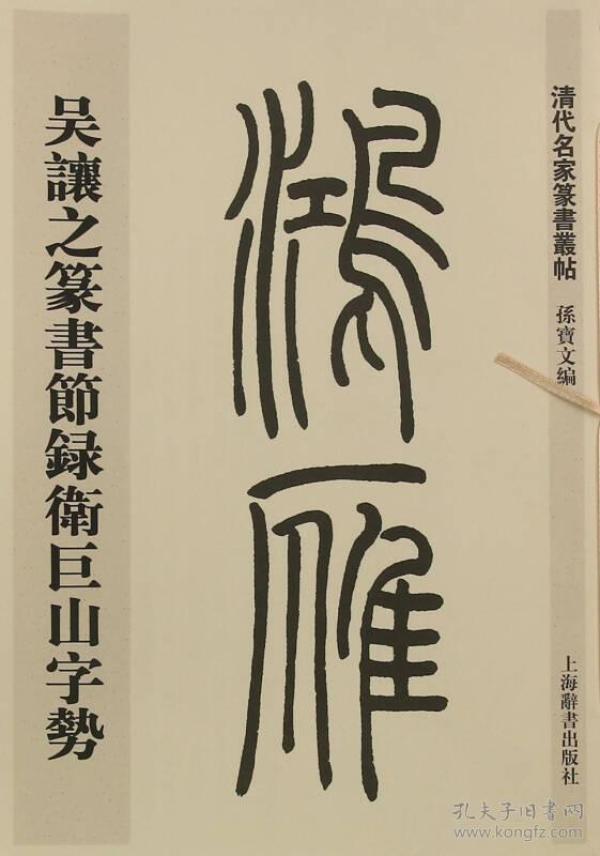 清代名家篆書叢帖 孫寶文編
鴻雁
吴讓之篆書節録衛巨山字勢
上海辭書出版社
孔夫子旧書网
www.kongfz.com